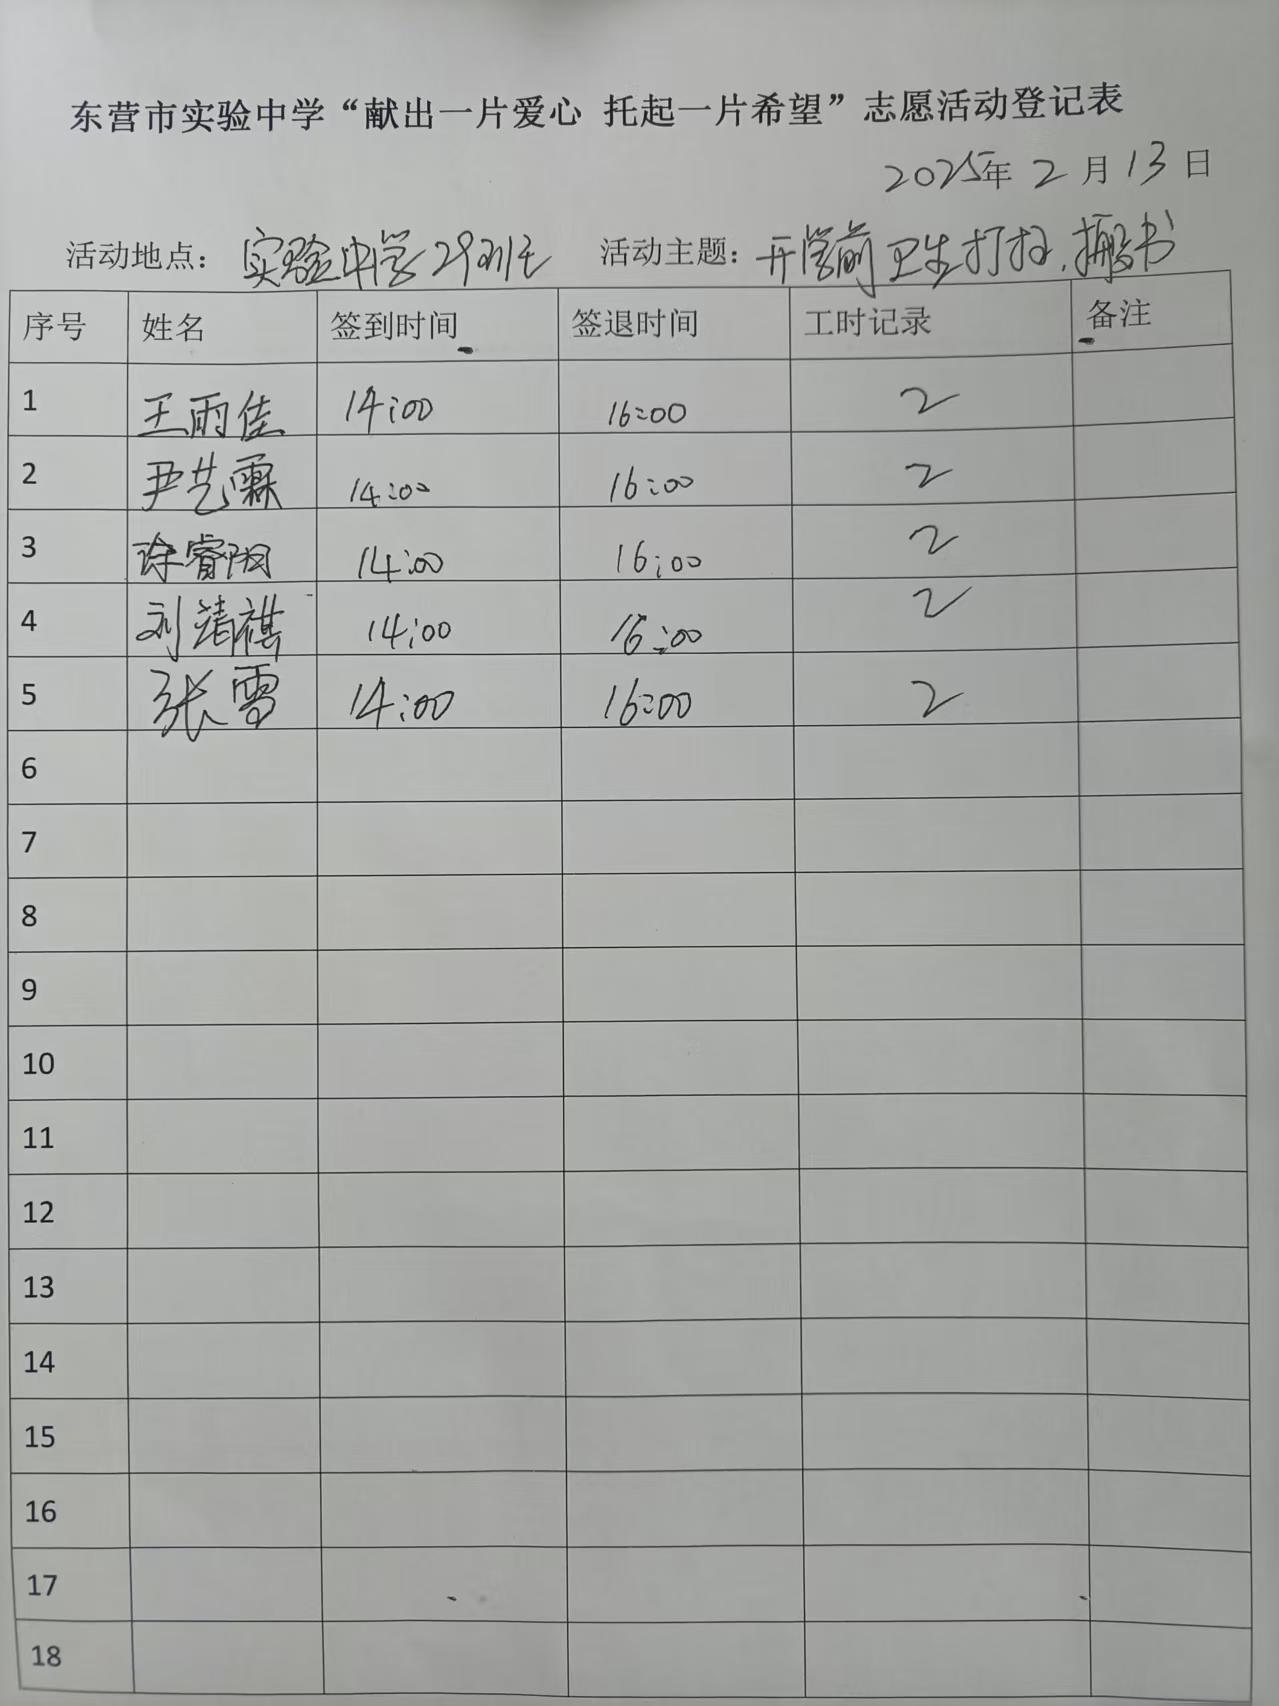 东营市实验中学“献出一片爱心 托起一片希望”志愿活动登记表
2025年 2 月 13 日
活动地点： 实验中学29班 活动主题： 开学前卫生打扫，搬书
序号 姓名 签到时间 签退时间 工时记录 备注
1 王雨佳 14:00 16:00 2
2 尹艺霖 14:00 16:00 2
3 徐睿阳 14:00 16:00 2
4 刘靖祺 14:00 16:00 2
5 张雪 14:00 16:00 2
6
7
8
9
10
11
12
13
14
15
16
17
18